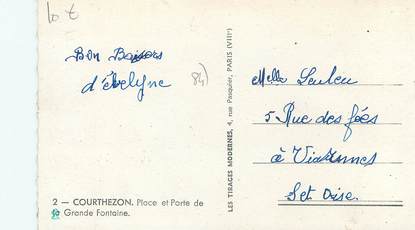 10 €
Bon Baisers
d'Evelyne
84)
Melle Leuleu
5 Rue des fées
à Viarmes
Set Oise.
LES TIRAGES MODERNES, 4, rue Pasquier, PARIS (VIIIe)
2 — COURTHEZON. Place et Porte de
la Grande Fontaine.